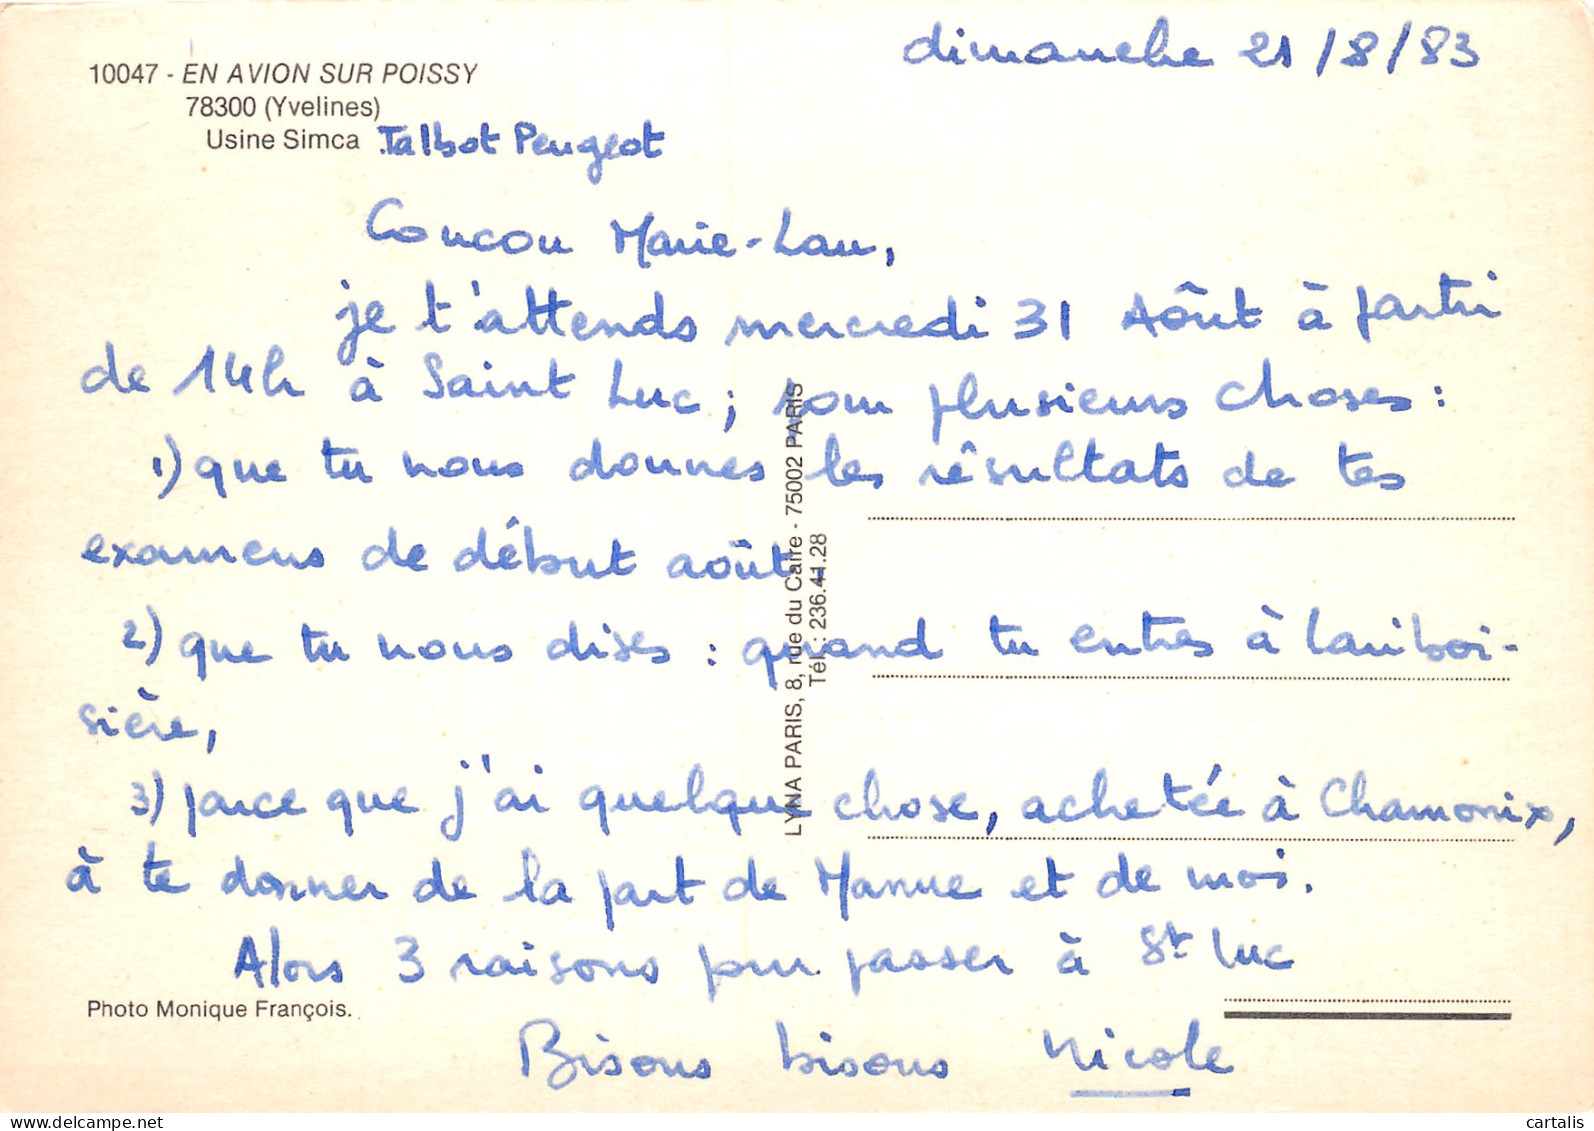 dimanche 21/8/83
10047 - EN AVION SUR POISSY
78300 (Yvelines)
Usine Simca Talbot Peugeot
Coucou Marie-Lau,
je t'attends mercredi 31 Août à partir
de 14h à Saint Luc ; pour plusieurs choses :
1) que tu nous donnes les résultats de tes
examens de début août.
2) que tu nous dises : quand tu entres à Lariboi-
sière,
3) parce que j'ai quelque chose, achetée à Chamonix,
à te donner de la part de Manue et de moi.
Alors 3 raisons pour passer à St Luc
Bisous bisous Nicole
Photo Monique François.
LYNA PARIS, 8, rue du Caire - 75002 PARIS
Tél. : 236.41.28
cartalis
delcampe.net